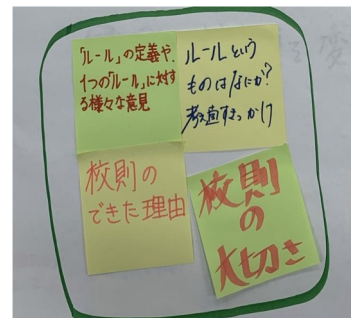 「ルール」の定義や、
1つの「ルール」に対す
る様々な意見
ルールという
ものは何か?
考え直すきっかけ
校則の
できた理由
校則
の
大切さ